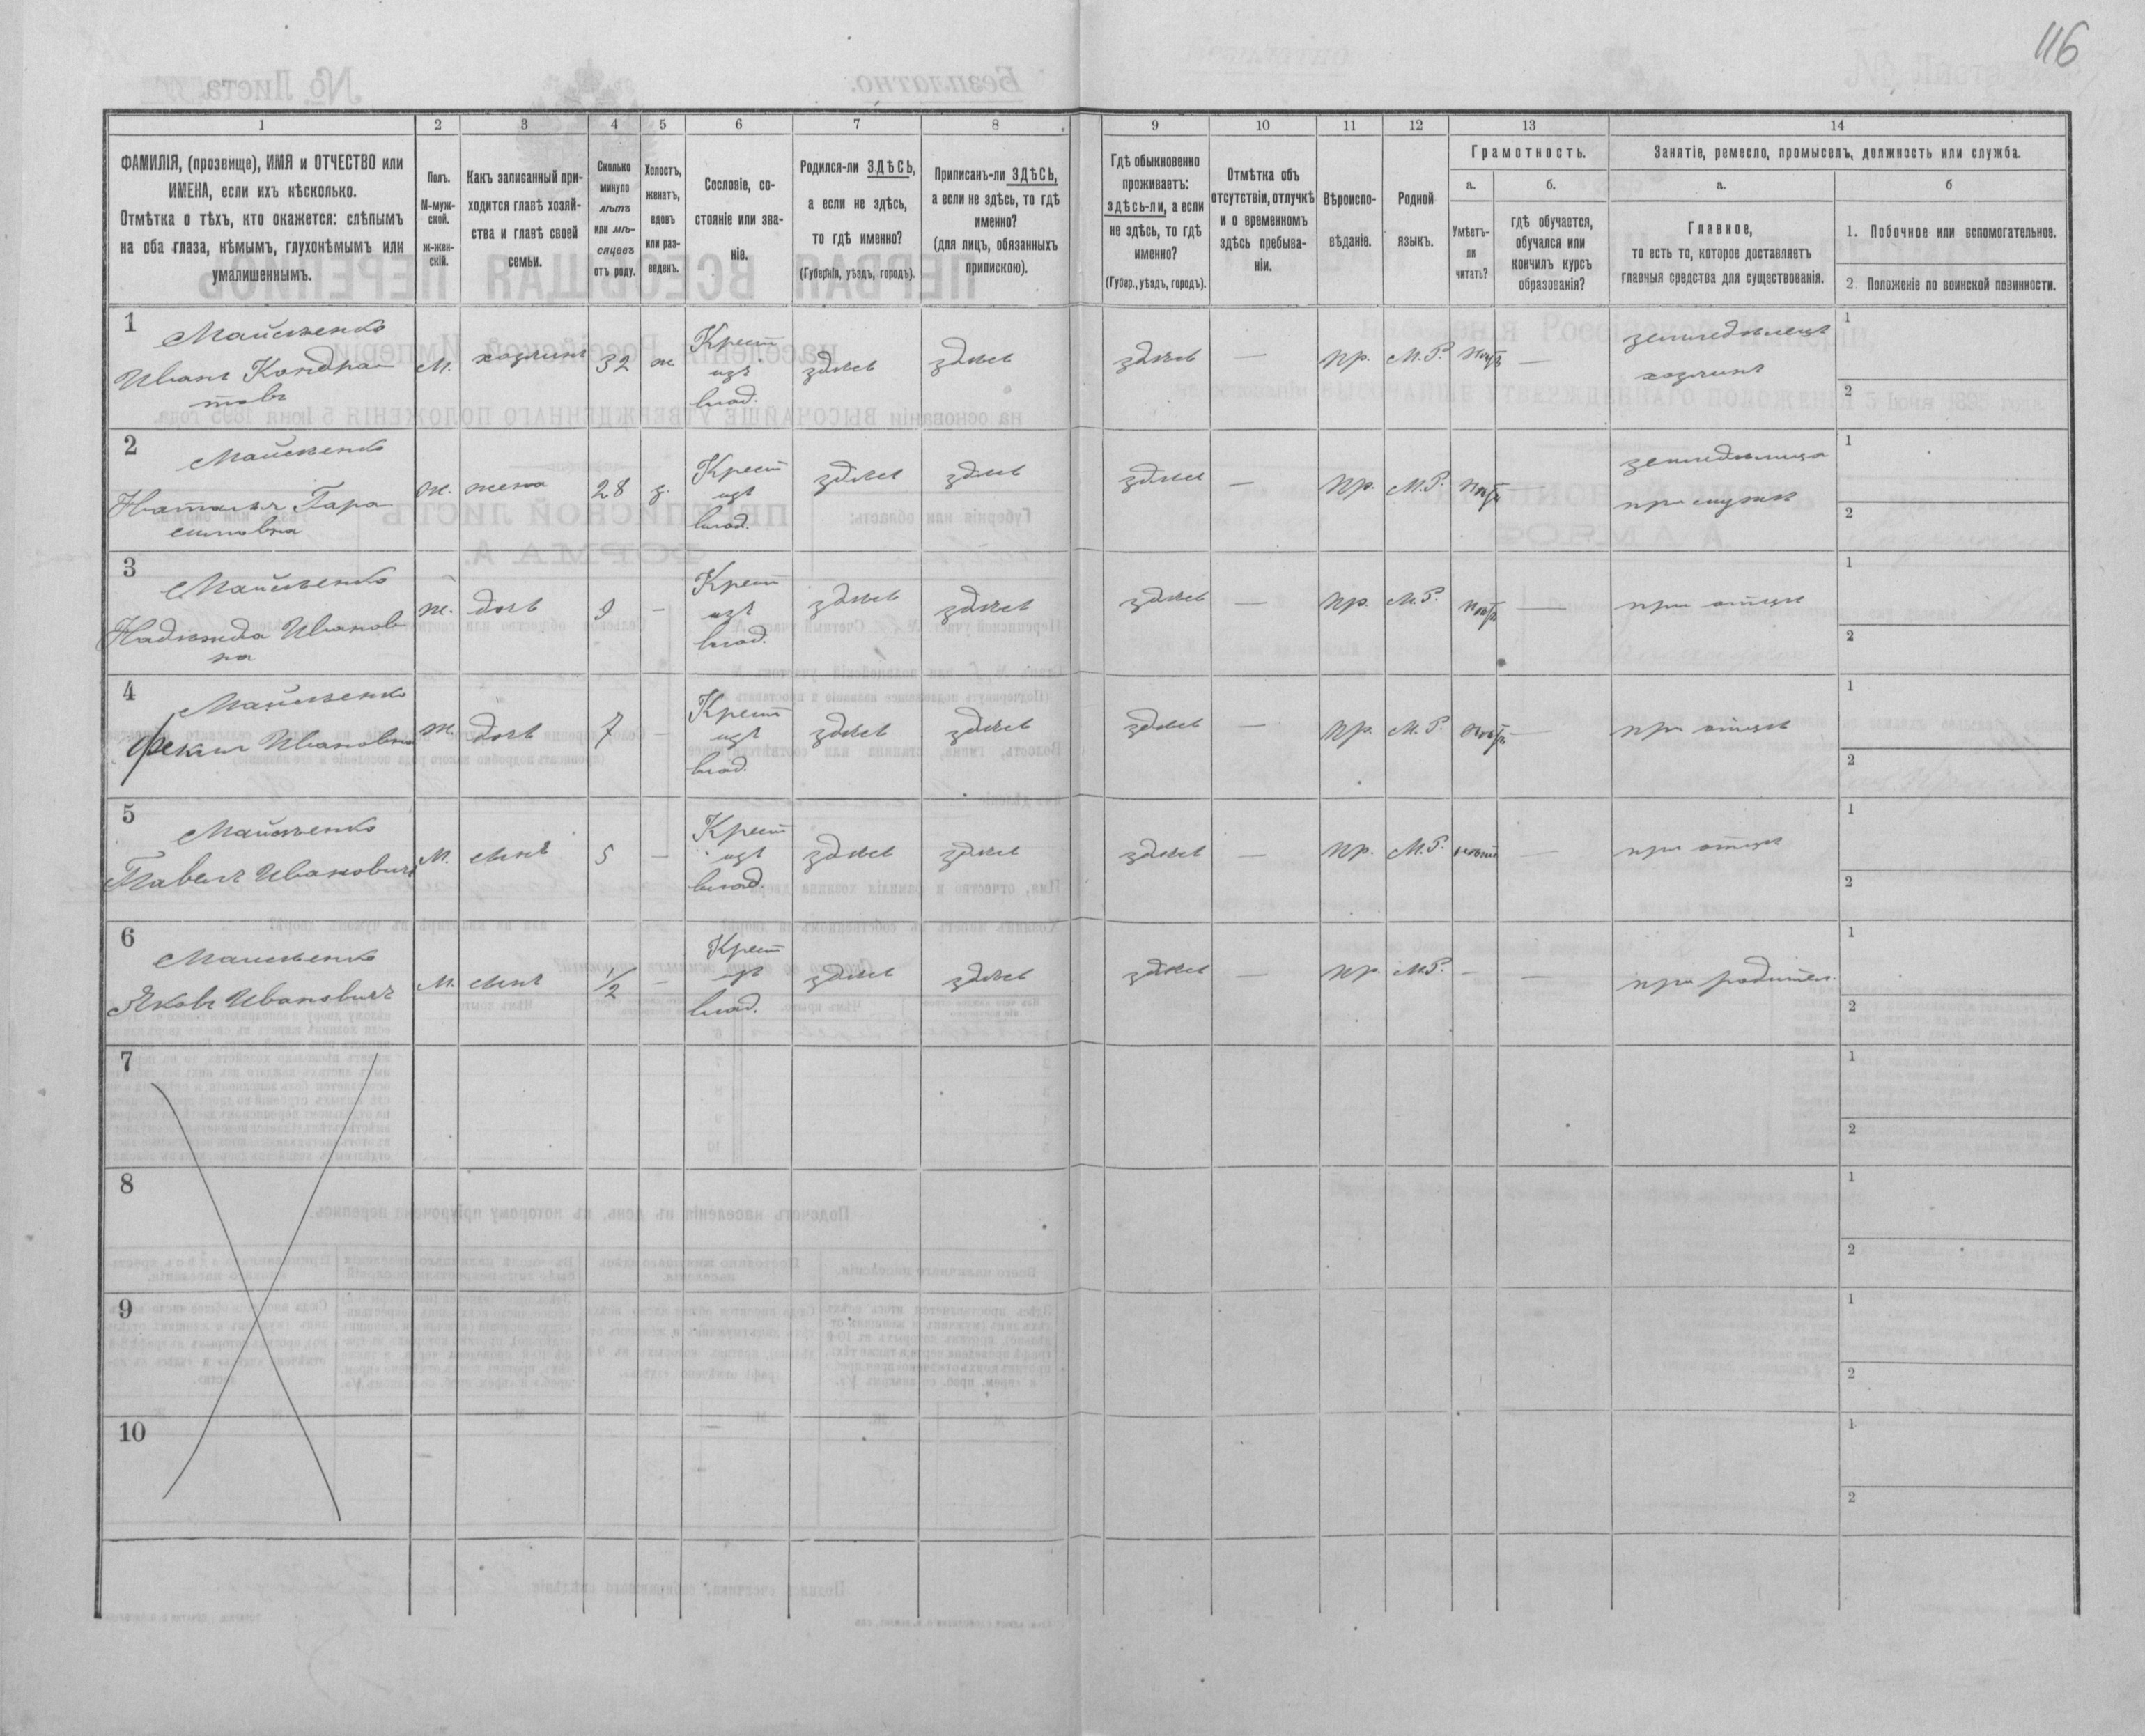 116
1
2
3
4
5
6
7
8
9
10
11
12
13
14
ФАМИЛІЯ, (прозвище), ИМЯ и ОТЧЕСТВО или
ИМЕНА, если ихъ нѣсколько.
Отмѣтка о тѣхъ, кто окажется: слѣпымъ
на оба глаза, нѣмымъ, глухонѣмымъ или
умалишеннымъ.
Полъ.
М-муж-
ской.
ж-жен-
скій.
Какъ записанный при-
ходится главѣ хозяй-
ства и главѣ своей
семьи.
Сколько
минуло
лѣтъ
или мѣ-
сяцевъ
отъ роду.
Холостъ,
женатъ,
вдовъ
или раз-
веденъ.
Сословіе, со-
стояніе или зва-
ніе.
Родился-ли ЗДѢСЬ,
а если не здѣсь,
то гдѣ именно?
(Губернія, уѣздъ, городъ).
Приписанъ-ли ЗДѢСЬ,
а если не здѣсь, то гдѣ
именно?
(для лицъ, обязанныхъ
припискою).
Гдѣ обыкновенно
проживаетъ:
здѣсь-ли, а если
не здѣсь, то гдѣ
именно?
(Губер., уѣздъ, городъ).
Отмѣтка объ
отсутствіи, отлучкѣ
и о временномъ
здѣсь пребыва-
ніи.
Вѣроиспо-
вѣданіе.
Родной
языкъ.
Грамотность.
а.
Умѣетъ-
ли
читать?
б.
гдѣ обучается,
обучался или
кончилъ курсъ
образованія?
Занятіе, ремесло, промыселъ, должность или служба.
а.
Главное,
то есть то, которое доставляетъ
главныя средства для существованія.
б
1. Побочное или вспомогательное.
2. Положеніе по воинской повинности.
1
Иванъ Кондра
товъ
М. хозяинъ 32 ж Крест
изъ
влад.
здѣсь здѣсь здѣсь — пр. М.Р. — земледѣлецъ
хозяинъ
1
2
2
Наталья Гара
симовна
ж. жена 28 з. Крест
изъ
влад.
здѣсь здѣсь здѣсь — пр. М.Р. — земледѣлица
при мужѣ
1
2
3
Надежда Иванов
на
ж. дочь 9 — Крест
изъ
влад.
здѣсь здѣсь здѣсь — пр. М.Р. — при отцѣ
1
2
4
Фекла Ивановна
ж. дочь 7 — Крест
изъ
влад.
здѣсь здѣсь здѣсь — пр. М.Р. — при отцѣ
1
2
5
Павелъ Ивановичъ
М. сынъ 5 — Крест
изъ
влад.
здѣсь здѣсь здѣсь — пр. М.Р. — при отцѣ
1
2
6
Яковъ Ивановичъ
М. сынъ 1/2 — Крест
изъ
влад.
здѣсь здѣсь здѣсь — пр. М.Р. — — при родител.
1
2
7
1
2
8
1
2
9
1
2
10
1
2